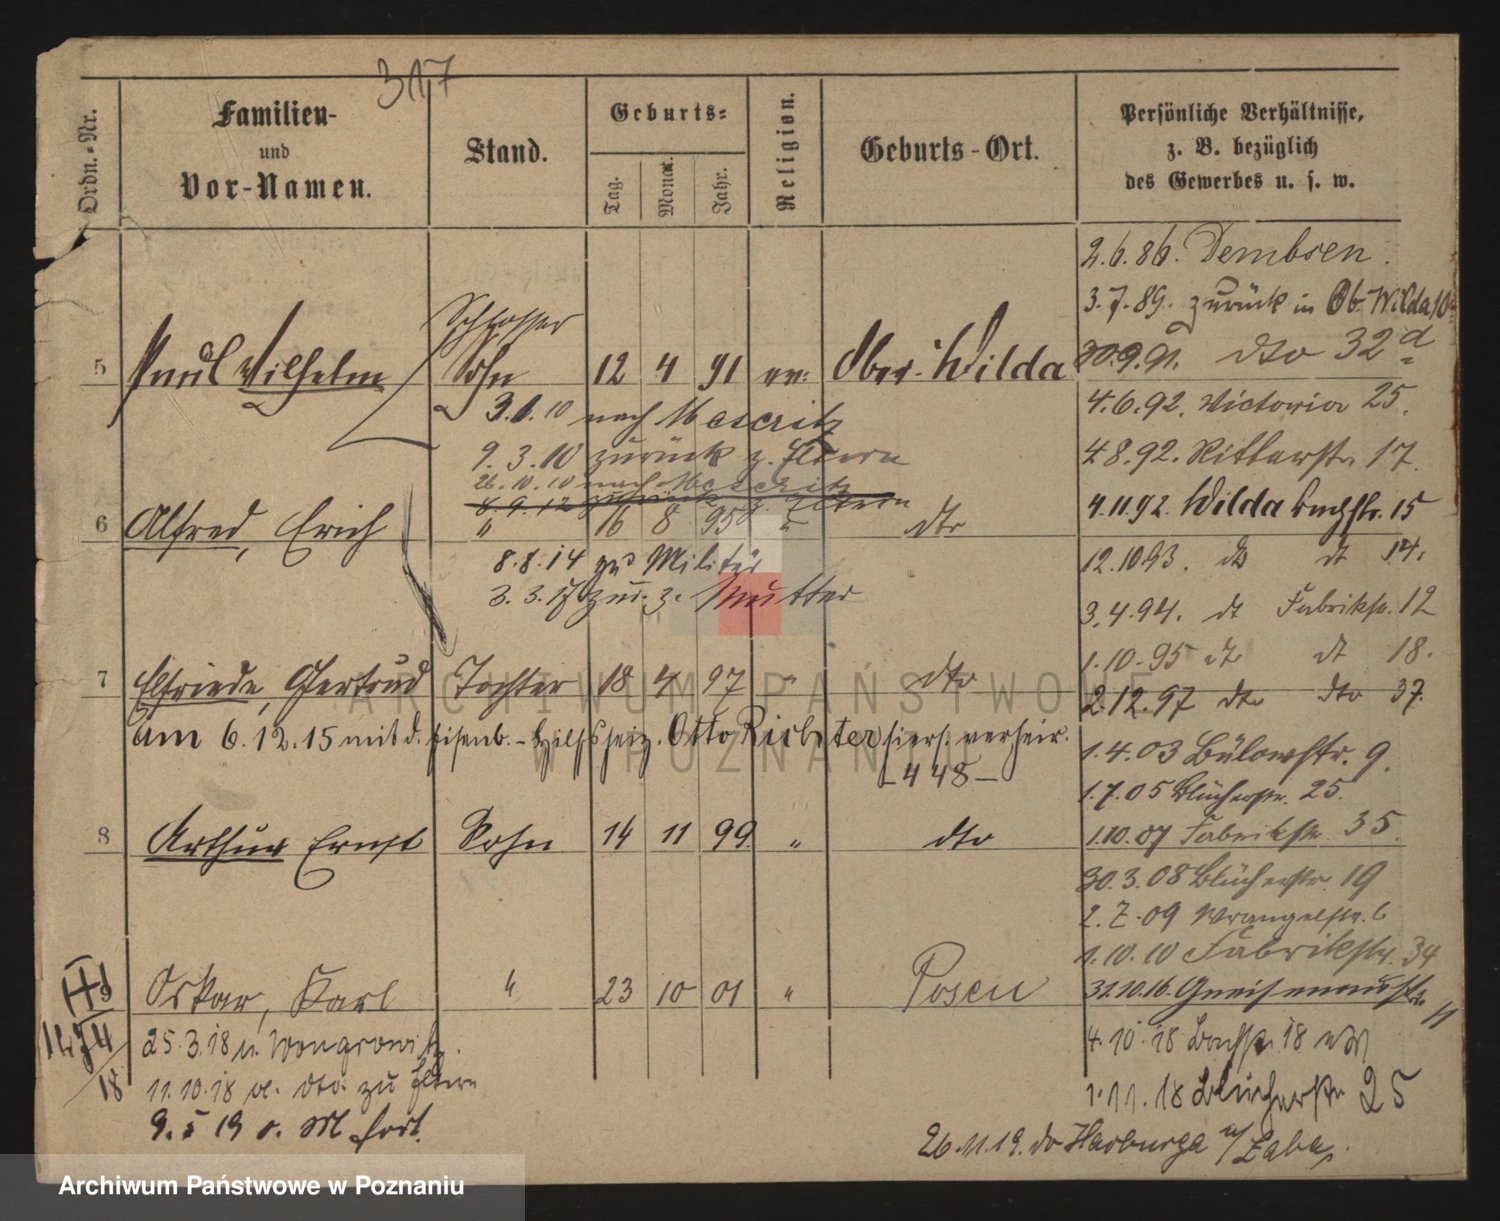 317
Ordn.-Nr.
Familien-
und
Vor-Namen.
Stand.
Geburts-
Tag.
Monat.
Jahr.
Religion.
Geburts-Ort.
Persönliche Verhältnisse,
z. B. bezüglich
des Gewerbes u. s. w.
2.6.86. Dembsen.
3.7.89. zurück in Ob. Wilda
Schlosser
5 Paul Wilhelm Sohn 12 4 91 ev: Ober-Wilda
30.9.91. dto 32d
3.1.10 nach Meseritz
4.6.92. Victoria 25.
9.3.10 zurück z. Eltern
4.8.92. Ritterstr. 17.
26.10.10 nach Meseritz
9.12 zurück z. Eltern
4.11.92. Wilda Bachstr. 15
6 Alfred, Erich " 16 8 95 " dto
8.8.14 zu Militär
12.10.93. dto dt 14.
3.3.17 zur. z. Mutter
3.4.94. dt Fabrikstr. 12
1.10.95 dt dt 18.
7 Elfriede, Gertrud Tochter 18 4 97 " dto
2.12.97 dto dto 37.
am 6.12.15 mit d. Eisenb.-Hilfsheiz. Otto Richter hiers. verheir.
-448-
1.4.03 Bülowstr. 9.
1.7.05 Blücherstr. 25.
8 Arthur Ernst Sohn 14 11 99 " dto
1.10.07 Fabrikstr. 35.
30.3.08 Blücherstr. 19
2.7.09 Wrangelstr. 6
1.10.10 Fabrikstr. 34
9 Oskar, Karl " 23 10 01 " Posen
31.10.16. Gneisenaustr. 11
25.3.18 n. Wongrowitz
4.10.18 Bachstr. 18
11.10.18 v. dto. zu Eltern
18
1.11.18 Blücherstr 25
9.5 19 o. M fort.
26.11.19. do Harburg a/
ARCHIWUM PAŃSTWOWE
W POZNANIU
Archiwum Państwowe w Poznaniu